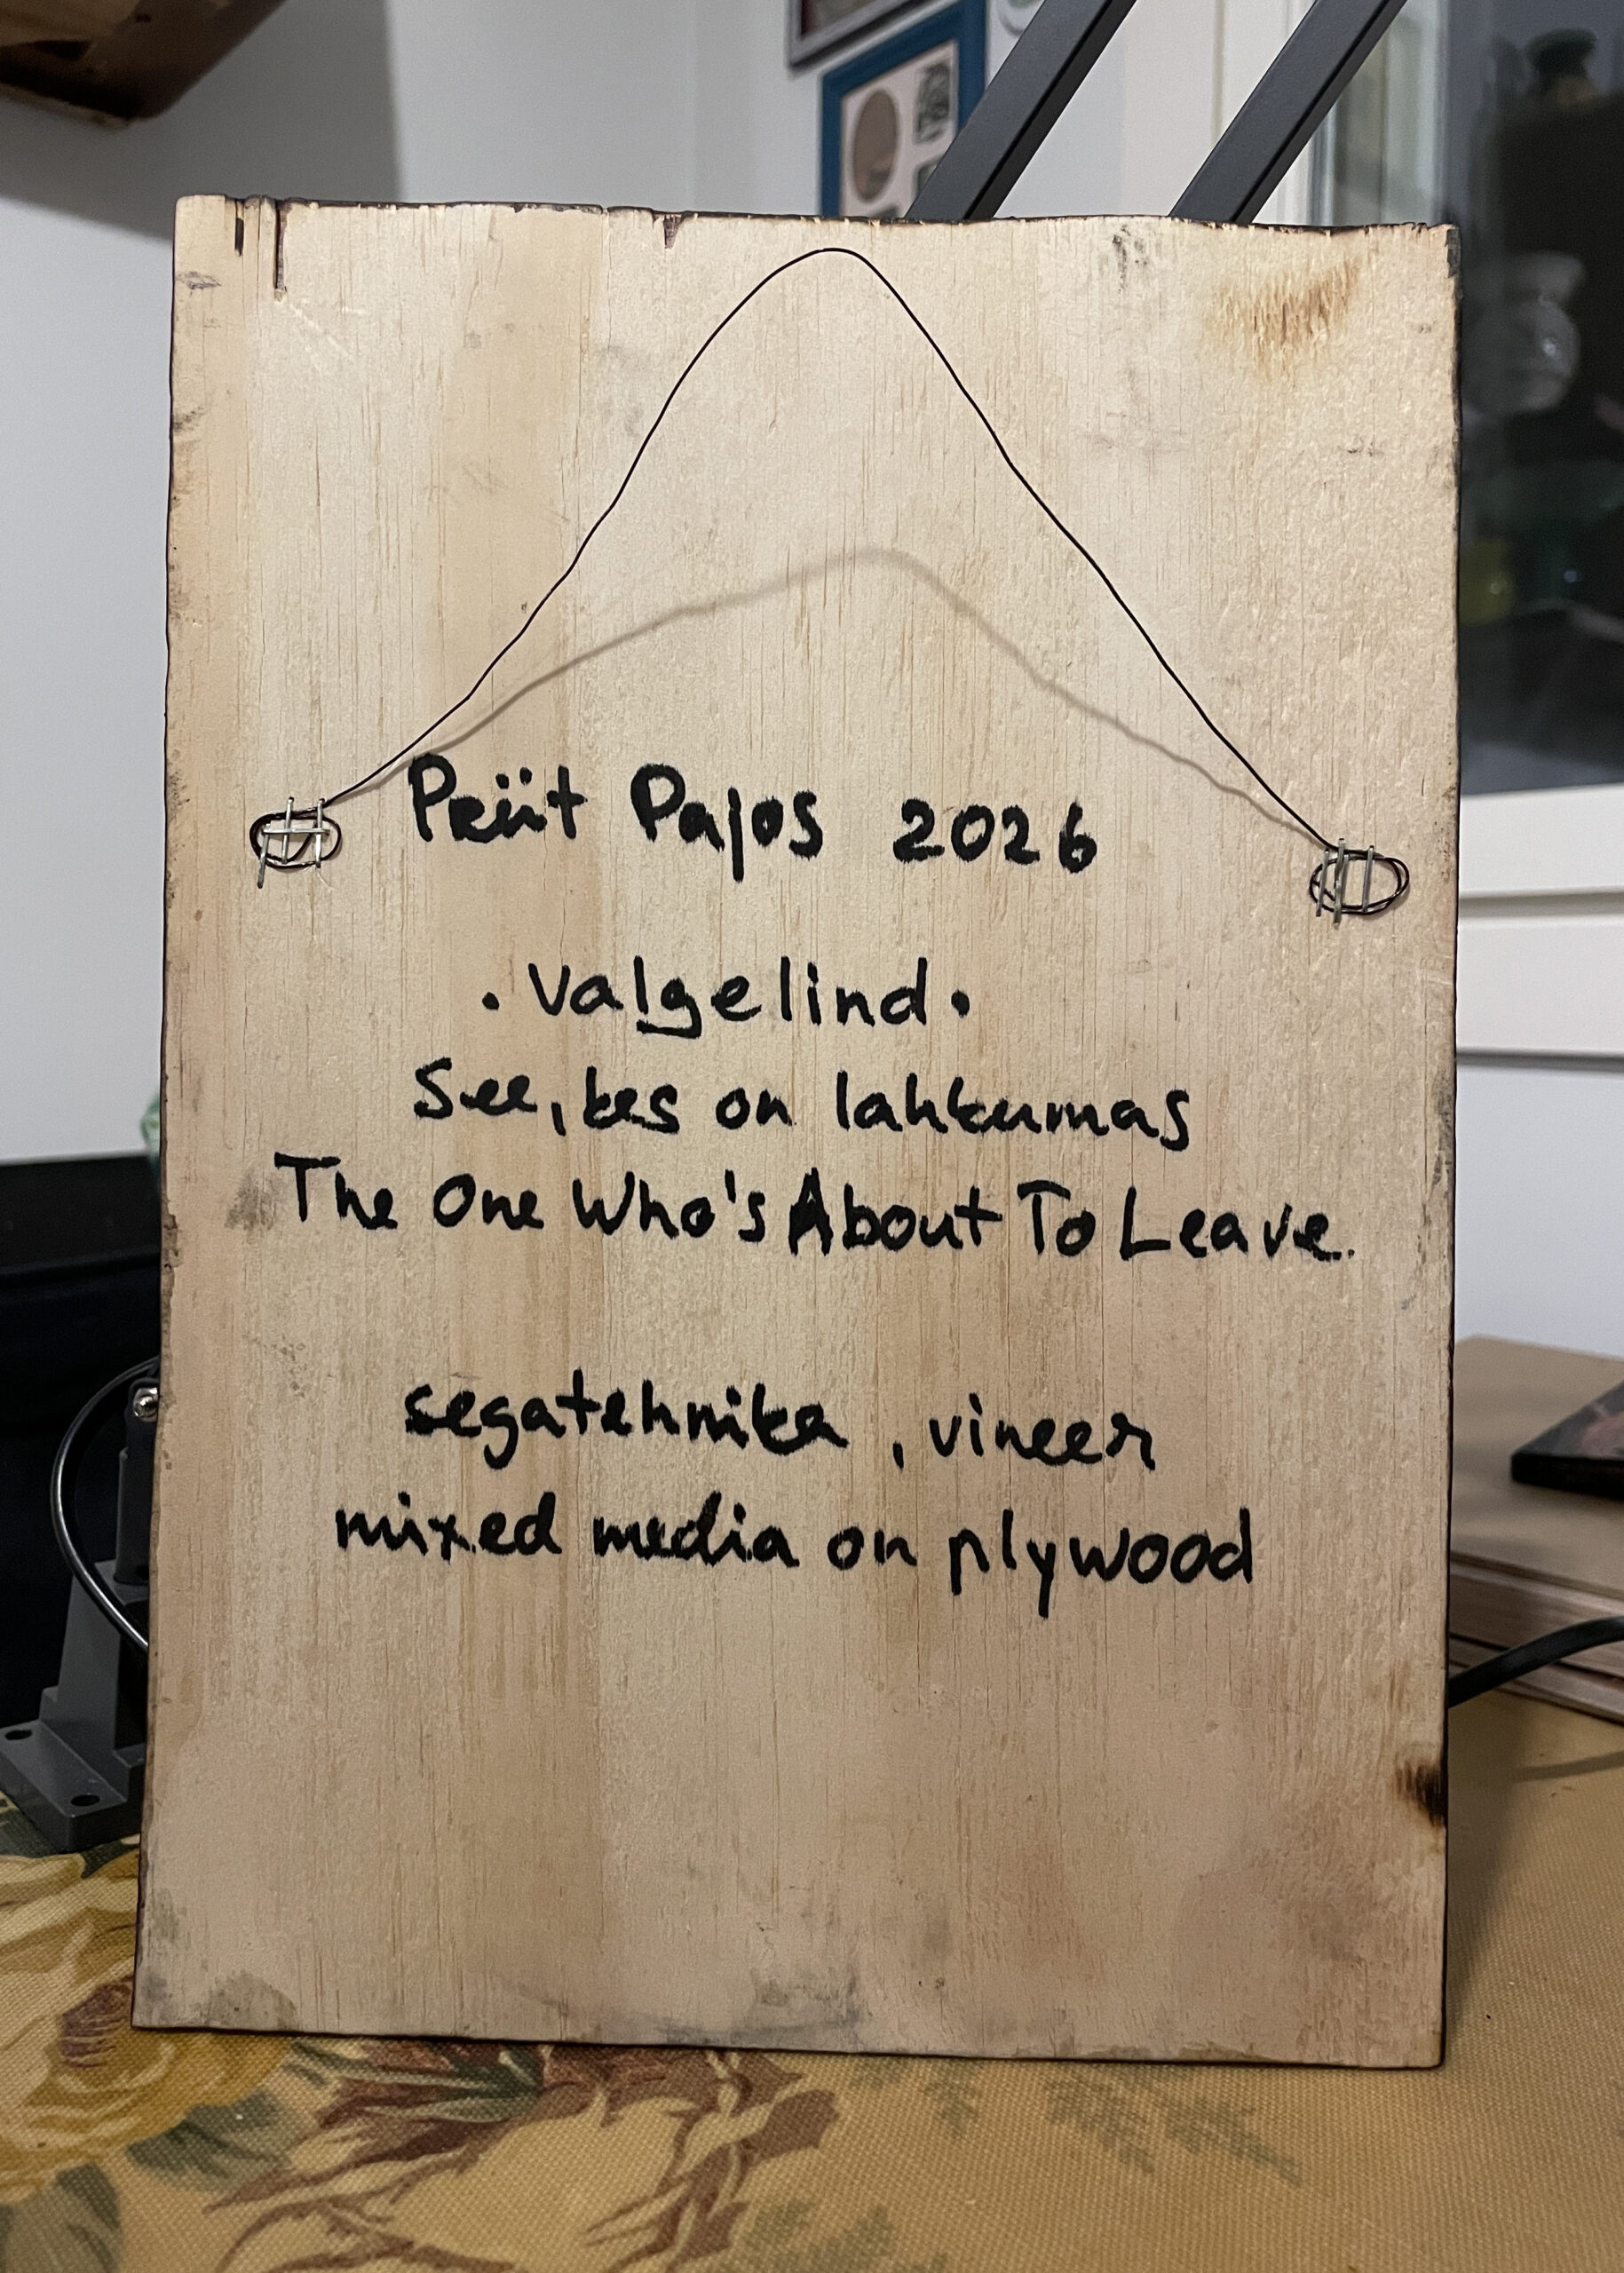 Priit Pajos 2026
. Valgelind .
See, kes on lahkumas
The One Who's About To Leave.
segatehnika , vineer
mixed media on plywood